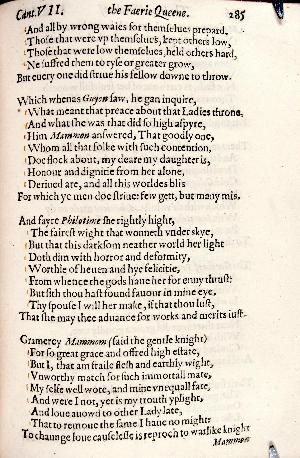 Cant. VII. the Faerie Queene. 285
And all by wrong waies for themselues prepard.
Those that were vp themselues, kept others low,
Those that were low themselues, held others hard,
Ne suffred them to ryse or greater grow,
But euery one did striue his fellow downe to throw.
Which whenas Guyon saw, he gan inquire,
What meant that preace about that Ladies throne,
And what she was that did so high aspyre.
Him Mammon answered, That goodly one,
Whom all that folke with such contention,
Doe flock about, my deare my daughter is,
Honour and dignitie from her alone,
Deriued are, and all this worldes blis
For which ye men doe striue: few gett, but many mis.
And fayre Philotime she rightly hight,
The fairest wight that wonneth vnder skye,
But that this darksom neather world her light
Doth dim with horror and deformity,
Worthie of heuen and hye felicitie,
From whence the gods haue her for enuy thrust:
But sith thou hast found fauour in mine eye,
Thy spouse I will her make, if that thou lust,
That she may thee aduance for works and merits iust.
Gramercy Mammon (said the gentle knight)
For so great grace and offred high estate,
But I, that am fraile flesh and earthly wight,
Vnworthy match for such immortall mate,
My selfe well wote, and mine vnequall fate,
And were I not, yet is my trouth yplight,
And loue auowd to other Lady late,
That to remoue the same I haue no might:
To chaunge loue causelesse is reproch to warlike knight
Mammon